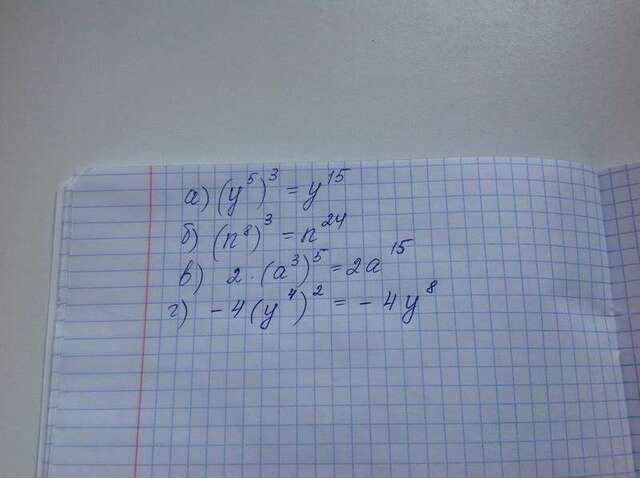 а) (y⁵)³ = y¹⁵
б) (n⁸)³ = n²⁴
в) 2 · (a³)⁵ = 2a¹⁵
г) - 4 (y⁴)² = - 4y⁸